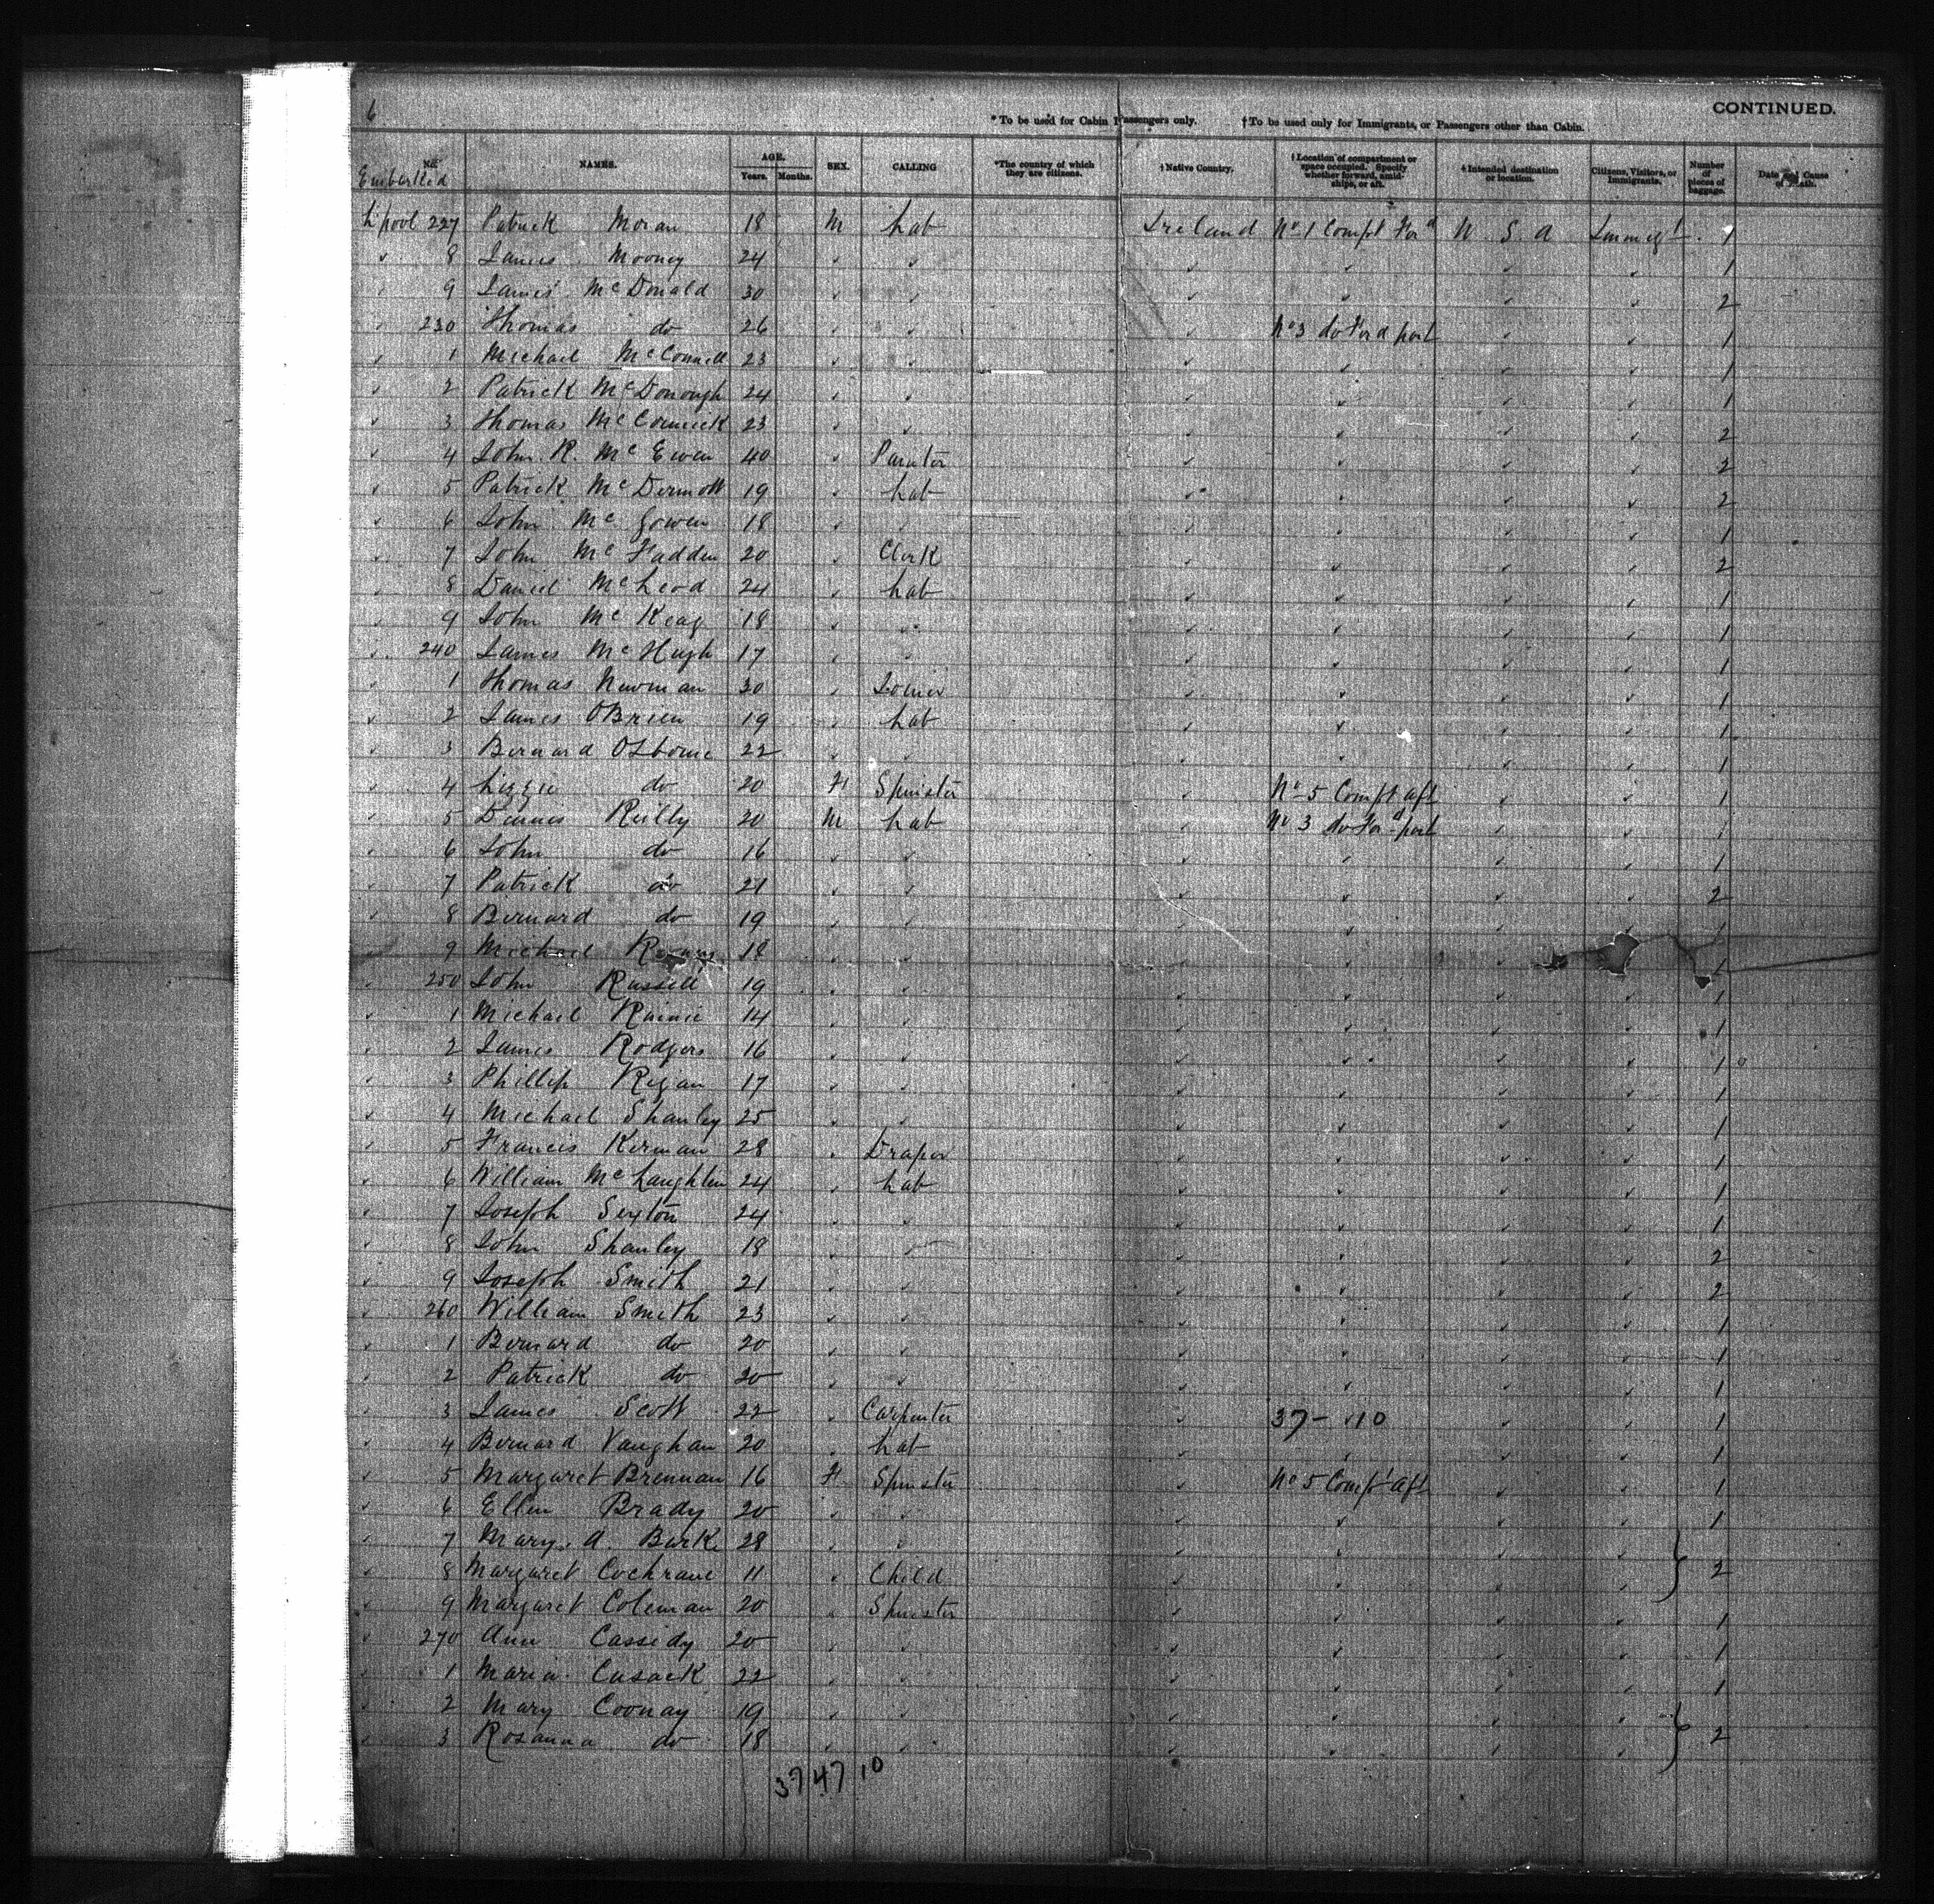 6
CONTINUED.
* To be used for Cabin Passengers only. † To be used only for Immigrants, or Passengers other than Cabin.
No. Embarked NAMES. AGE. Years. Months. SEX. CALLING *The country of which they are citizens. †Native Country. †Location of compartment or space occupied. Specify whether forward, amidships, or aft. †Intended destination or location. Citizens, Visitors, or Immigrants. Number of pieces of baggage. Date and Cause of Death.
L'pool 227 Patrick Moran 18 M Lab Ireland No 1 Compt For'd U. S. A Immigt 1
✓ 8 James Mooney 24 ✓ ✓ ✓ ✓ ✓ ✓ 1
✓ 9 James McDonald 30 ✓ ✓ ✓ ✓ ✓ ✓ 2
✓ 230 Thomas do 26 ✓ ✓ ✓ No 3 do For'd port ✓ ✓ 1
✓ 1 Michael McConnell 23 ✓ ✓ ✓ ✓ ✓ ✓ 1
✓ 2 Patrick McDonough 24 ✓ ✓ ✓ ✓ ✓ ✓ 1
✓ 3 Thomas McCormick 23 ✓ ✓ ✓ ✓ ✓ ✓ 2
✓ 4 John R. McEwen 40 ✓ Painter ✓ ✓ ✓ ✓ 2
✓ 5 Patrick McDermott 19 ✓ Lab ✓ ✓ ✓ ✓ 2
✓ 6 John McGowen 18 ✓ ✓ ✓ ✓ ✓ ✓ 1
✓ 7 John McFadden 20 ✓ Clerk ✓ ✓ ✓ ✓ 2
✓ 8 Daniel McLeod 24 ✓ Lab ✓ ✓ ✓ ✓ 1
✓ 9 John McKeag 18 ✓ ✓ ✓ ✓ ✓ ✓ 1
✓ 240 James McHugh 17 ✓ ✓ ✓ ✓ ✓ ✓ 1
✓ 1 Thomas Newman 30 ✓ Joiner ✓ ✓ ✓ ✓ 1
✓ 2 James OBrien 19 ✓ Lab ✓ ✓ ✓ ✓ 1
✓ 3 Bernard Osborne 22 ✓ ✓ ✓ ✓ ✓ ✓ 1
✓ 4 Lizzie do 20 F Spinster ✓ No 5 Compt aft ✓ ✓ 1
✓ 5 Dennis Reilly 20 M Lab ✓ No 3 do For'd port ✓ ✓ 1
✓ 6 John do 16 ✓ ✓ ✓ ✓ ✓ ✓ 1
✓ 7 Patrick do 21 ✓ ✓ ✓ ✓ ✓ ✓ 2
✓ 8 Bernard do 19 ✓ ✓ ✓ ✓ ✓ ✓ 1
✓ 9 Michael 18 ✓ ✓ ✓ ✓ ✓ 1
✓ 250 John Russell 19 ✓ ✓ ✓ ✓ ✓ ✓ 1
✓ 1 Michael Rainie 14 ✓ ✓ ✓ ✓ ✓ ✓ 1
✓ 2 James Rodgers 16 ✓ ✓ ✓ ✓ ✓ ✓ 1
✓ 3 Phillip Regan 17 ✓ ✓ ✓ ✓ ✓ ✓ 1
✓ 4 Michael Shanley 25 ✓ ✓ ✓ ✓ ✓ ✓ 1
✓ 5 Francis Kernan 28 ✓ Draper ✓ ✓ ✓ ✓ 1
✓ 6 William McLaughlin 24 ✓ Lab ✓ ✓ ✓ ✓ 1
✓ 7 Joseph Sexton 24 ✓ ✓ ✓ ✓ ✓ ✓ 1
✓ 8 John Shanley 18 ✓ ✓ ✓ ✓ ✓ ✓ 2
✓ 9 Joseph Smith 21 ✓ ✓ ✓ ✓ ✓ ✓ 2
✓ 260 William Smith 23 ✓ ✓ ✓ ✓ ✓ ✓ 1
✓ 1 Bernard do 20 ✓ ✓ ✓ ✓ ✓ ✓ 1
✓ 2 Patrick do 20 ✓ ✓ ✓ ✓ ✓ ✓ 1
✓ 3 James Scott 22 ✓ Carpenter ✓ 37 - ✓10 ✓ ✓ 1
✓ 4 Bernard Vaughan 20 ✓ Lab ✓ ✓ ✓ ✓ 1
✓ 5 Margaret Brennan 16 F Spinster ✓ No 5 Compt aft ✓ ✓ 1
✓ 6 Ellen Brady 20 ✓ ✓ ✓ ✓ ✓ ✓ 1
✓ 7 Mary. A. Burk 28 ✓ ✓ ✓ ✓ ✓ ✓ }
✓ 8 Margaret Cochrane 11 ✓ Child ✓ ✓ ✓ ✓ } 2
✓ 9 Margaret Coleman 20 ✓ Spinster ✓ ✓ ✓ ✓ 1
✓ 270 Ann Cassidy 20 ✓ ✓ ✓ ✓ ✓ ✓ 1
✓ 1 Maria Cusack 22 ✓ ✓ ✓ ✓ ✓ ✓ 1
✓ 2 Mary Coonay 19 ✓ ✓ ✓ ✓ ✓ ✓ }
✓ 3 Rosanna do 18 ✓ ✓ ✓ ✓ ✓ ✓ } 2
37 47 10